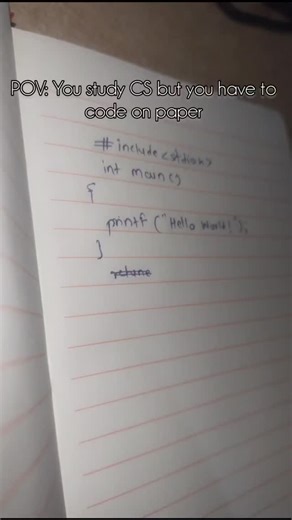 POV: You study CS but you have to
code on paper
#include<stdio.h>
int main()
{
printf ("Hello World!");
}
return